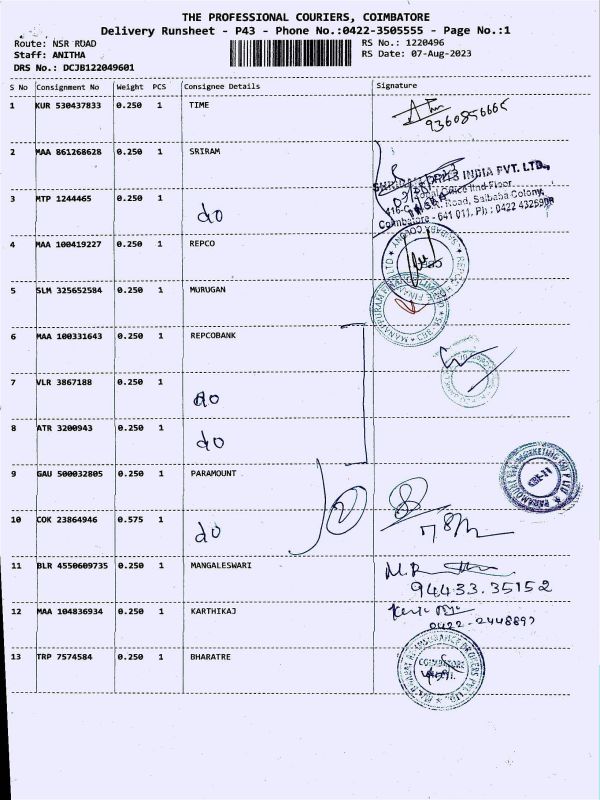 THE PROFESSIONAL COURIERS, COIMBATORE
Delivery Runsheet - P43 - Phone No.:0422-3505555 - Page No.:1
Route: NSR ROAD
RS No.: 1220496
Staff: ANITHA
RS Date: 07-Aug-2023
DRS No.: DCJB122049601
S No Consignment No Weight PCS Consignee Details Signature
1 KUR 530437833 0.250 1 TIME
9360856665
2 MAA 861268628 0.250 1 SRIRAM
3 MTP 1244465 0.250 1 do
INDIA PVT. LTD.,
IInd Floor,
Road, Saibaba Colony,
Coimbatore - 641 011. Ph : 0422 4325909
4 MAA 100419227 0.250 1 REPCO
5 SLM 325652584 0.250 1 MURUGAN
6 MAA 100331643 0.250 1 REPCOBANK
7 VLR 3867188 0.250 1 do
8 ATR 3200943 0.250 1 do
9 GAU 500032805 0.250 1 PARAMOUNT
10 COK 23864946 0.575 1 do
2
11 BLR 4550609735 0.250 1 MANGALESWARI
94433.35152
12 MAA 104836934 0.250 1 KARTHIKAJ
13 TRP 7574584 0.250 1 BHARATRE
COIMBATORE